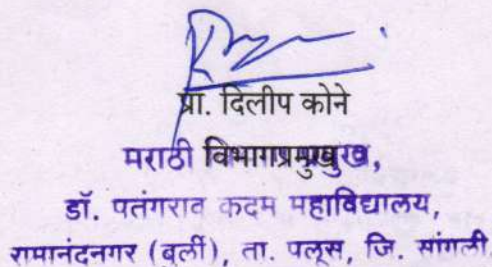 प्रा. दिलीप कोने
मराठी विभागप्रमुख,
डॉ. पतंगराव कदम महाविद्यालय,
रामानंदनगर (बुर्ली), ता. पलूस, जि. सांगली.